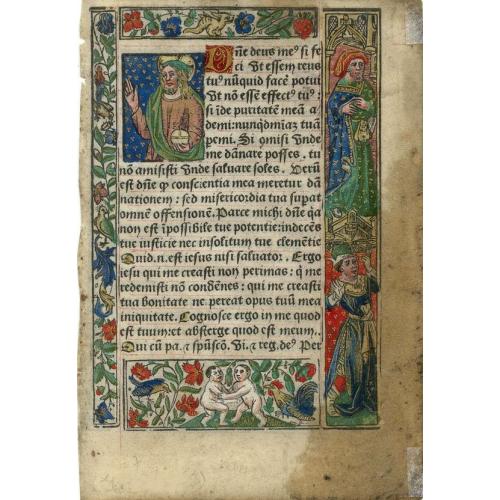 Dñe deus me⁹ si fe
ci vt essem reus
tu⁹ nũquid facẽ potui
vt nõ essẽ effect⁹ tu⁹:
si ĩde puritatẽ meã a
demi: nunqd mĩaz tuã
pemi. Si cmisi vnde
me dãnare posses. tu
nõ amisisti vnde saluare soles. Verũ
est dñe ꝙ conscientia mea meretur dã
nationem: sed misericordia tua supat
omnẽ offensionẽ. Parce michi dñe q̃a
non est ĩpossibile tue potentie: indecẽs
tue iusticie nec insolitum tue clemẽtie
Quid.n.est iesus nisi saluator. Ergo
iesu qui me creasti non perimas: q̃ me
redemisti nõ condẽnes: qui me creasti
tua bonitate ne pereat opus tuũ mea
iniquitate. Cognosce ergo in me quod
est tuum: et absterge quod est meum..
Qui cũ pa. ⁊ spũscõ. Vi. ⁊ reg. de⁹ Per